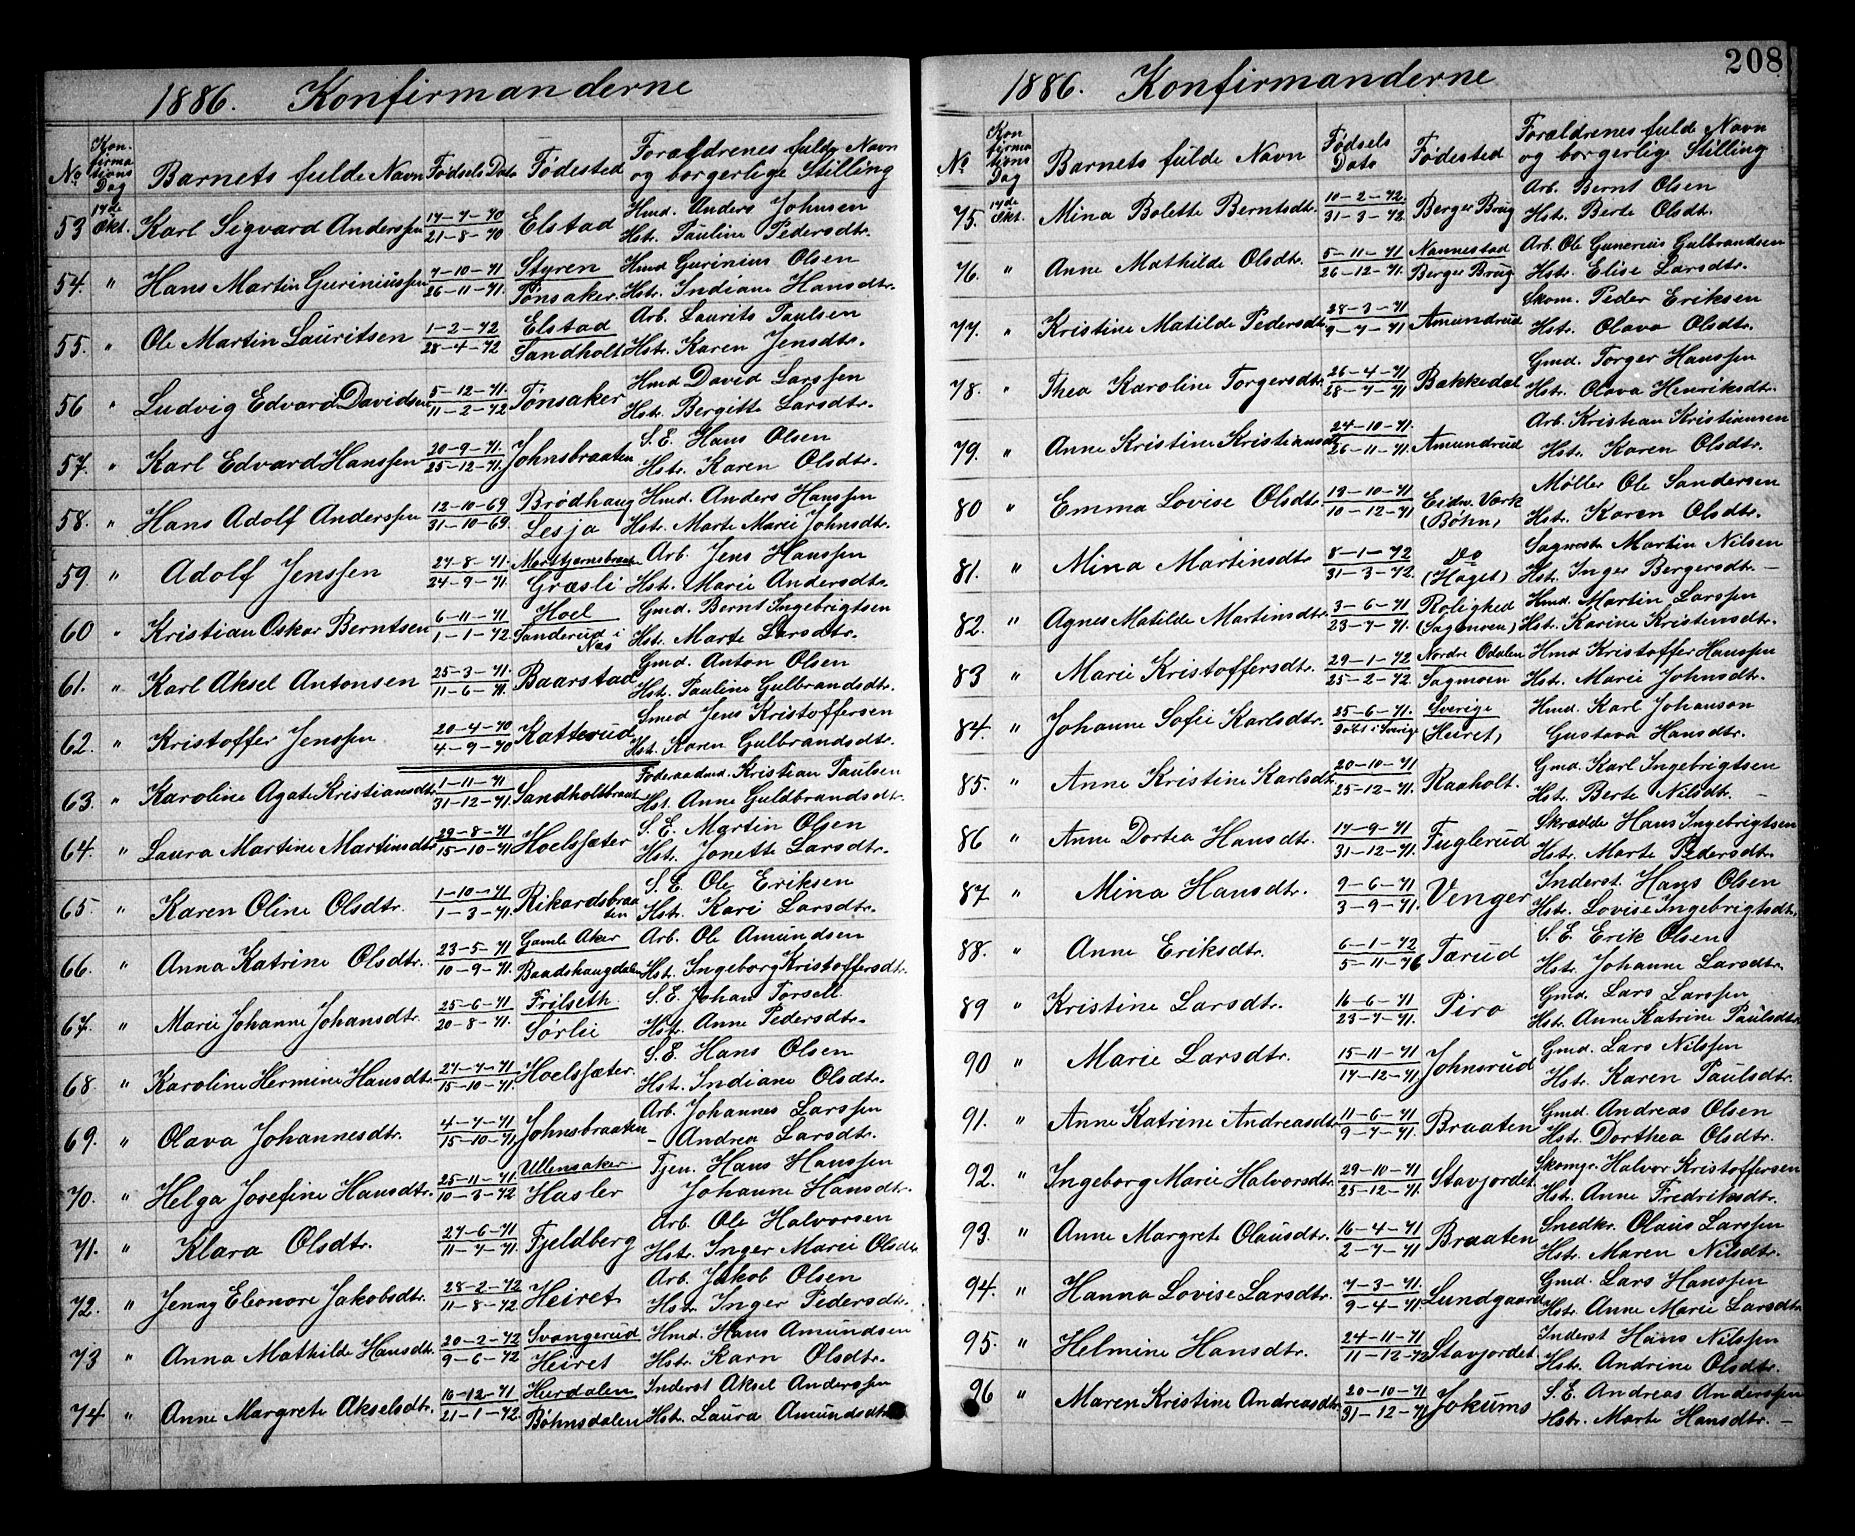 1886. Konfirmanderne
No
Konfirmations Dag
Barnets fulde Navn
Fødsels Dato
Fødested
Forældrenes fulde Navn og borgerlige Stilling
53 17de Okt. Karl Sigvard Anderssen 17-7-70 Elstad Hmd. Anders Johnsen
21-8-70 Hst. Pauline Pedersdtr.
54. " Hans Martin Guriniussen 7-10-71 Styren Hmd Gurinius Olsen
26-11-71. Tønsaker. Hstr. Indiane Hansdtr.
55. " Ole Martin Lauritsen 1-2-72 Elstad Arb. Laurits Paulsen
28-4-72 Sandholt Hstr. Karen Jensdtr.
56 " Ludvig Edvard Davidsen 5-12-71. Tønsaker Hmd David Larssen
11-2-72 Hst. Bergitte Larsdtr.
57. " Karl Edvard Hanssen 20-9-71. Johnsbraaten S. E. Hans Olsen
25-12-71. Hstr. Karen Olsdtr.
58. " Hans Adolf Anderssen 12-10-69 Brødhaug Hmd. Anders Hanssen
31-10-69. Lesja Hstr. Marte Marie Johnsdtr.
59 " Adolf Jenssen 27-8-71. Morttjernsbraat Arb. Jens Hanssen
24-9-71. Græsli Hst. Marie Andersdtr.
60 " Kristian Oskar Berntsen 6-11-71 Hoel Gmd. Bernt Ingebrigtsen
1-1-72 Sanderud i Næs Hst. Marte Larsdtr.
61. " Karl Aksel Antonsen 25-3-71. Baarstad Gmd. Anton Olsen
11-6-71. Hst. Pauline Gulbrandsdtr.
62. " Kristoffer Jenssen 20-4-70 Katterud Smed Jens Kristoffersen
4-9-70 Hst. Karen Gulbrandsdtr.
63. " Karoline Agate Kristiansdtr 1-11-71 Sandholtbraat Føderaadmd. Kristian Paulsen
31-12-71. Hst. Anne Guldbrandsdtr.
64. " Laura Martine Martinsdtr 29-8-71 Hoelsæter S. E. Martin Olsen
15-10-71 Hst. Jonette Larsdtr.
65. " Karen Oline Olsdtr. 1-10-71 Rikardsbraaten S. E. Ole Eriksen
1-3-71. Hst. Kari Larsdtr.
66. " Anna Katrine Olsdtr. 23-5-71 Gamle Aker Arb. Ole Amundsen
10-9-71. Baadshaugdalen Hst. Ingeborg Kristoffersdtr.
67. " Marie Johanne Johansdtr. 25-6-71 Frilseth. S. E. Johan Torsell
20-8-71. Sørlie Hst. Anne Pedersdtr.
68. " Karoline Hermine Hansdtr. 27-7-71 Hoelsæter. S. E. Hans Olsen
15-10-71. Hst. Indiane Olsdtr.
69. " Olava Johannesdtr. 4-7-71 Johnsbraaten Arb. Johannes Larssen
15-10-71. - Andrea Larsdtr.
70. " Helga Josefine Hansdtr. 25-11-71 Ullensaker. Tjen. Hans Hanssen
10-3-72 Hasler Johanne Hansdtr.
71. " Klara Olsdtr. 27-6-71 Fjeldberg Arb. Ole Halvorsen
11-7-71. Hst. Inger Marie Olsdtr
72. " Jenny Eleonore Jakobsdtr. 28-2-72 Heiret Arb. Jakob Olsen
11-8-72 Hst. Inger Pedersdtr
73 " Anna Mathilde Hansdtr 20-2-72 Svangerud Hmd. Hans Amundsen
9-6-72 Heiret Hst. Karn Olsdtr.
74 " Anne Margrete Akselsdtr. 16-12-71 Hurdalen Inderst Aksel Anderssen
21-1-72. Bøhnsdalen Hst. Laura Amundsdtr
208
1886. Konfirmanderne
No
Konfirmations Dag
Barnets fulde Navn
Fødsels Dato
Fødested
Forældrenes fulde Navn og borgerlige Stilling
75. 17de Okt. Mina Bolette Berntsdtr. 10-2-72. Berger Brug Arb. Bernt Olsen
31-3-72. Hst. Berte Olsdtr.
76. " Anne Mathilde Olsdtr. 5-11-71 Nannestad Arb. Ole Gunerius Gulbrandsen
26-12-71. Berger Brug Hst. Elise Larsdtr.
77. " Kristine Matilde Pedersdtr 28-3-71 Amundrud Skom. Peder Eriksen
9-7-71 Hst. Olava Olsdtr.
78. " Thea Karoline Torgersdtr. 26-4-71 Bakkedal Gmd. Torger Hanssen
28-7-71 Hst. Olava Henriksdtr.
79. " Anne Kristine Kristiansdtr 24-10-71. Amundrud Arb. Kristian Kristiansen
26-11-71. Hst. Karen Olsdtr.
80 " Emma Lovise Olsdtr. 19-10-71 Eidsv. Værk Møller Ole Sandersen
10-12-71 (Bøhn) Hst. Karen Olsdtr.
81. " Mina Martinsdtr 8-1-72 Do Sagmestr Martin Nilsen
31-3-72. (Haget) Hst. Inger Bergersdtr.
82. " Agnes Matilde Martinsdtr. 3-6-71 Rolighed Hmd. Martin Larssen
23-7-71. (Sagmoen) Hst. Karine Kristensdtr.
83 " Marie Kristoffersdtr. 29-1-72 Nordre Odalen Hmd Kristoffer Hanssen
25-2-72. Sagmoen Hst. Marie Johnsdtr.
84. " Johanne Sofie Karlsdtr. 25-6-71. Sverige Hmd. Karl Johanson
Døbt i Sverige (Heiret) Gustava Hansdtr.
85. " Anne Kristine Karlsdtr. 20-10-71 Raaholt. Gmd. Karl Ingebrigtsen
25-12-71. Hst. Berte Nilsdtr.
86 " Anne Dortea Hansdtr. 17-9-71 Fuglerud Skrædde Hans Ingebrigtsen
31-12-71. Hst. Marte Pedersdtr.
87 " Mina Hansdtr. 9-6-71 Venger Inderst. Hans Olsen
3-9-71. Hst. Lovise Ingebrigtsdtr,
88. " Anne Eriksdtr. 6-1-72 Tærud S. E. Erik Olsen
5-11-76 Hst. Johanne Larsdtr.
89 " Kristine Larsdtr. 16-6-71 Piro Gmd. Lars Larssen
23-7-71. Hst. Anne Katrine Paulsdtr
90 " Marie Larsdtr. 15-11-71 Johnsrud Gmd. Lars Nilssen
17-12-71 Hst. Karen Paulsdtr.
91. " Anne Katrine Andreasdtr 11-6-71 Braaten Gmd. Andreas Olsen
9-7-71. Hst. Dorthea Olsdtr.
92. " Ingeborg Marie Halvorsdtr. 29-10-71 Stavjordet. Skomgr. Halvor Kristoffersen
25-12-71. Hst. Anne Fredriksdtr.
93. " Anne Margrete Olausdtr. 16-4-71 Braaten Snedkr. Olaus Larssen
2-7-71 Hst. Maren Nilsdtr.
94. " Hanna Lovise Larsdtr. 7-3-71. Lundgaard Gmd. Lars Hanssen
9-4-71 Hst. Anne Marie Larsdtr
95. " Helmine Hansdtr. 24-11-71 Stavjordet Inderst Hans Nilssen
11-12-72 Hst. Andrine Olsdtr.
96 " Maren Kristine Andreasdtr. 20-10-71 Jokums S. E. Andreas Anderssen
31-12-71 Hst. Marte Hansdtr.